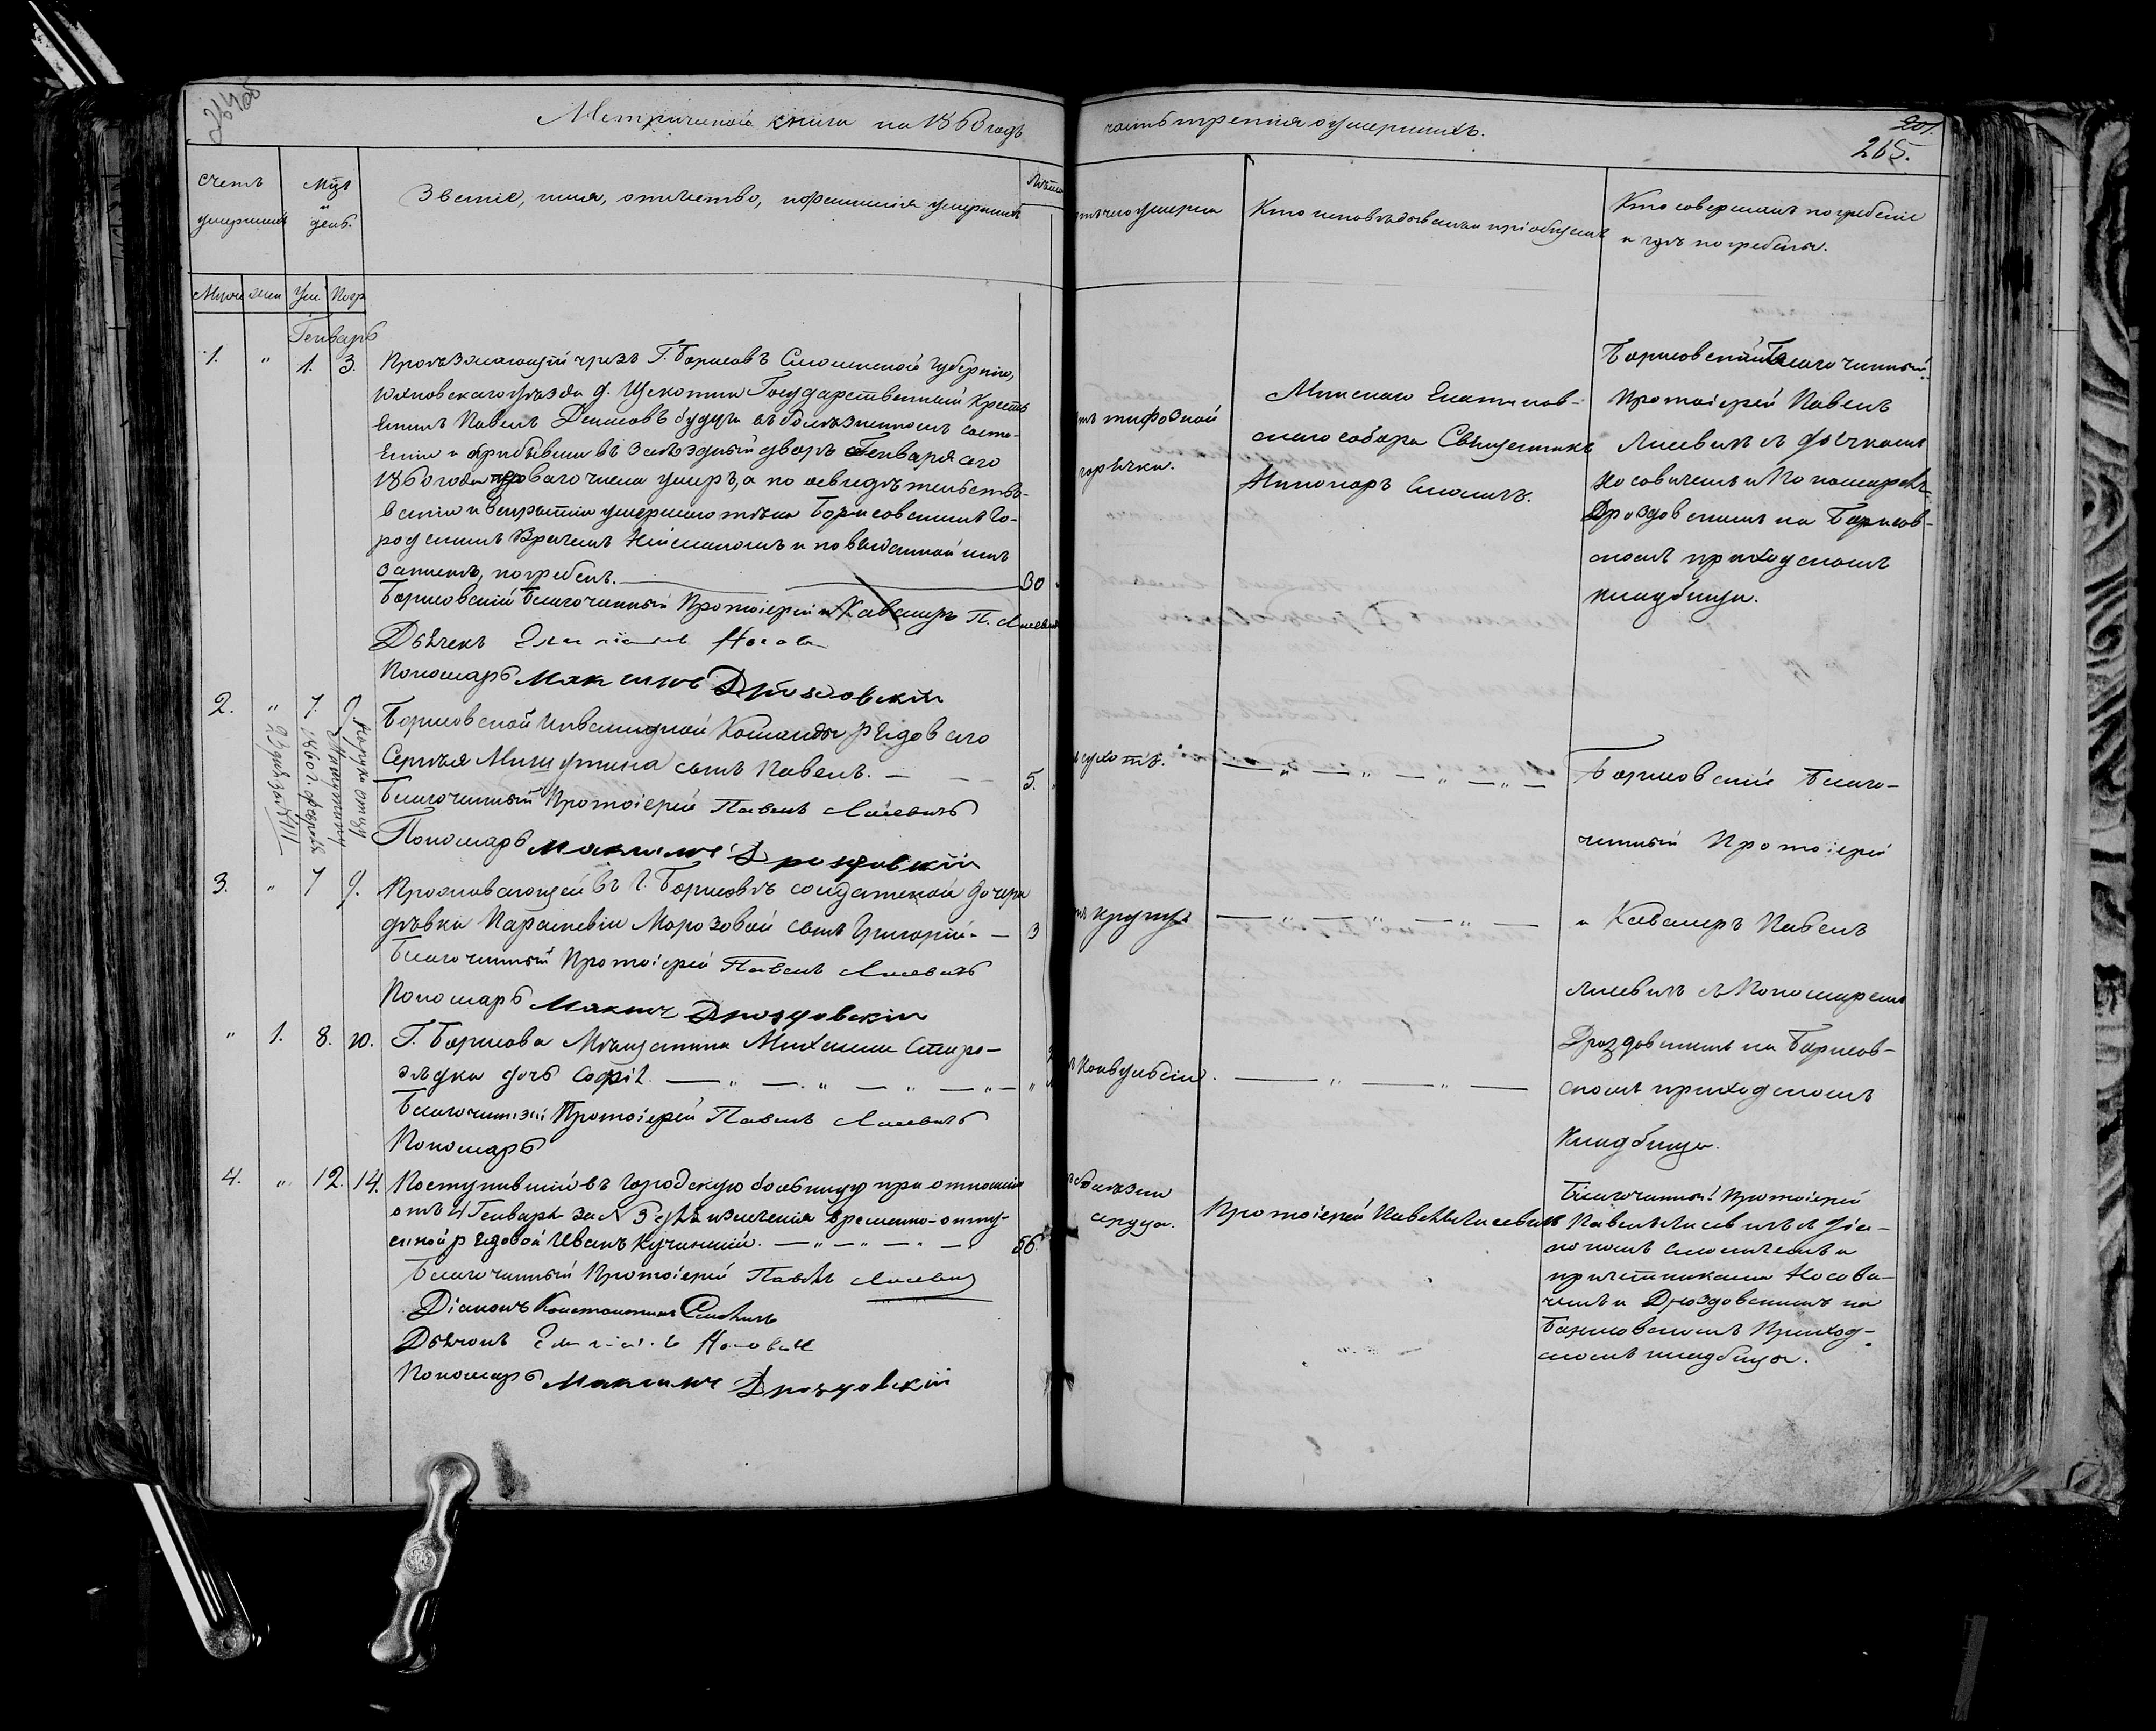 264об
Метрическая книга на 1860 годъ
часть третія о умершихъ.
201.
265.
Счетъ умершихъ
Мѣсяцъ и день.
Званіе, имя, отчество, и фамилія умершихъ
Лѣта
отъ чего умерли
Кто исповѣдовалъ и пріобщалъ
Кто совершалъ погребеніе
и гдѣ погребены.
Муж
жен
Ум
Погр
Генварь
1. " 1. 3.
Проѣзжающій чрезъ Г. Борисовъ Смоленской Губерніи,
Юхновскаго уѣзда д. Щекотки Государственный Кресть
янинъ Павелъ Денисовъ будучи въ болѣзненномъ состо-
яніи и прибывши въ заѣздный дворъ Генваря
1860 года числа умеръ, а по освидѣтельство-
ваніи и вскрытіи умершаго тѣла Борисовскимъ Го-
родскимъ Врачемъ и по выданной имъ
запискѣ, погребенъ. 30
Борисовскій Благочинный Протоіерей и Кавалеръ П. Лисевичъ
Дьячекъ
Пономарь Максимъ Дроздовскій
отъ тифозной
горячки.
Минскаго Екатерин-
скаго собора Священникъ
Никоноръ Смоличъ.
Борисовскій Благочинный
Протоіерей Павелъ
Лисевичъ съ дьячкомъ
Носовичемъ и Пономаремъ
Дроздовскимъ на Борисов-
скомъ приходскомъ
кладбищѣ.
2. " 7. 9.
Борисовской Инвалидной Команды рядоваго
Сергѣя Мишутина сынъ Павелъ. 5.
Благочинный Протоіерей Павелъ Лисевичъ
Пономарь Максимъ Дроздовскій
Мишутину
1860 г. февраля
23
сухоты.
Борисовскій Благо-
чинный Протоіерей
3. " 7 9.
Проживающей въ Г. Борисовѣ солдатской дочери
дѣвки Параскевіи Морозовой сынъ Григорій. 3
Благочинный Протоіерей Павелъ Лисевичъ
Пономарь Максимъ Дроздовскій
отъ крупу
и Кавалеръ Павелъ
Лисевичъ съ Пономаремъ
" 1. 8. 10.
Г. Борисова Мѣщанина Михаила Старо-
дочь Софія.
Благочинный Протоіерей Павелъ Лисевичъ
Пономарь
Конвульсіи.
Дроздовскимъ на Борисов-
скомъ приходскомъ
Кладбищѣ.
4. " 12. 14.
Поступившій въ городскую больницу при отношеніи
отъ 4 Генваря за № 3 для излеченія временно-отпу-
скной рядовой Иванъ Кучинскій. 56.
Благочинный Протоіерей Павелъ Лисевичъ
Діаконъ Константинъ Смоличъ
Дьячокъ
Пономарь Максимъ Дроздовскій
болѣзни
сердца.
Протоіерей Павелъ Лисевичъ
Благочинный Протоіерей
Павелъ Лисевичъ съ діа-
кономъ Смоличемъ и
причетниками Носови-
чемъ и Дроздовскимъ на
Борисовскомъ Приход-
скомъ кладбищѣ.